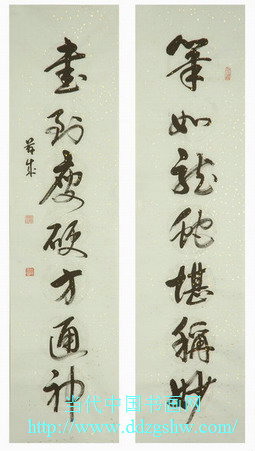 筆如龍蛇堪稱妙
書到瘦硬方通神
当代中国书画网
http://www.ddzgshw.com/